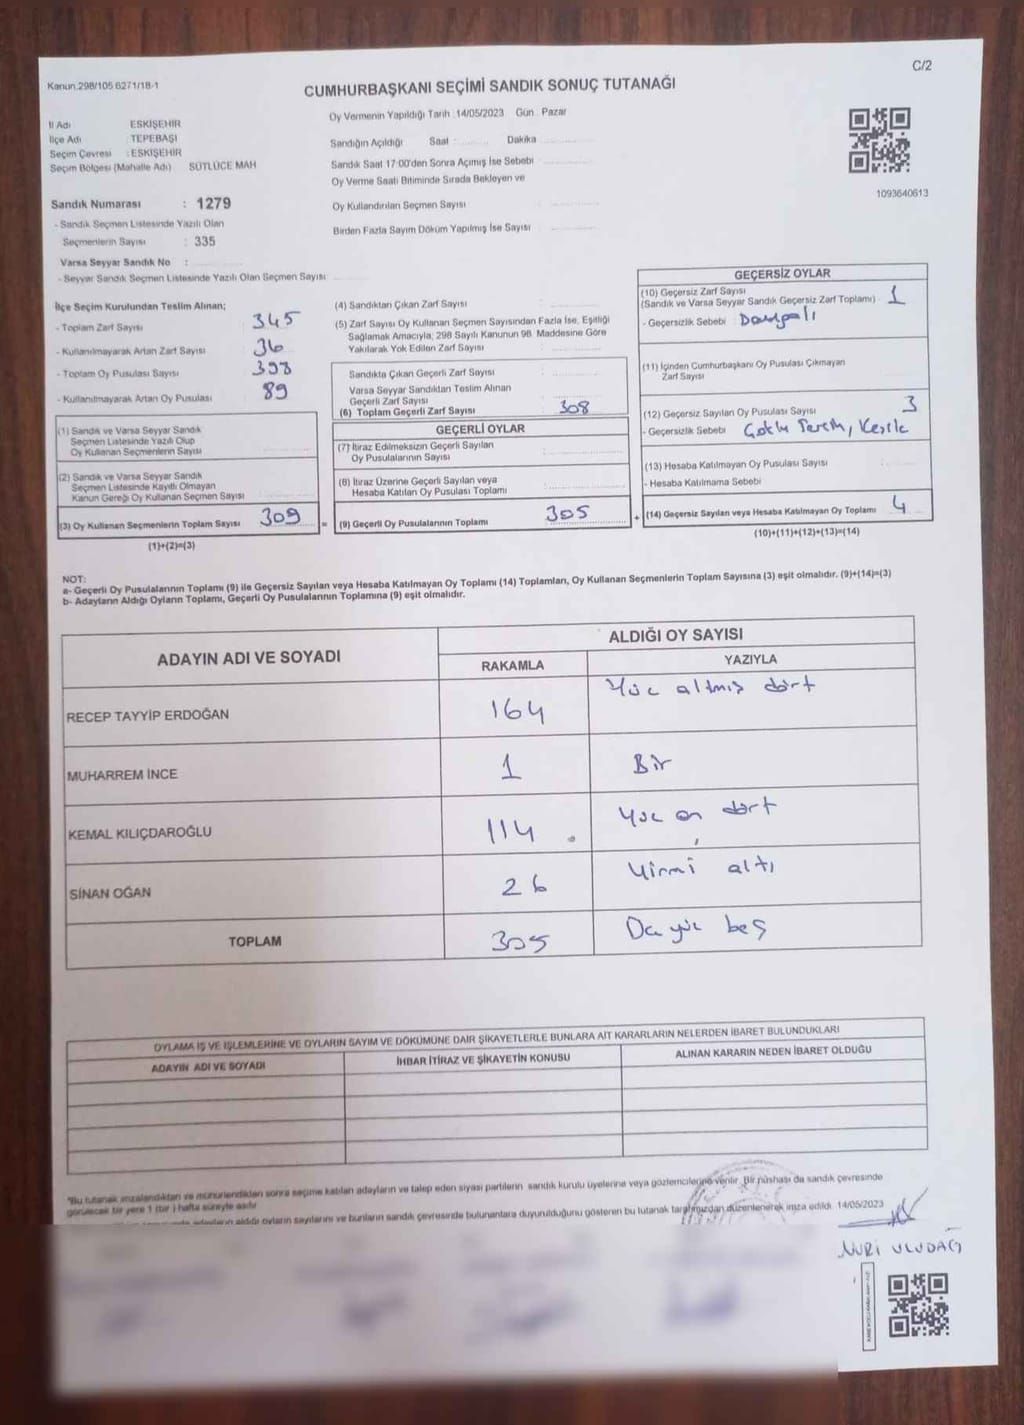 C/2
Kanun.298/105 6271/18-1
CUMHURBAŞKANI SEÇİMİ SANDIK SONUÇ TUTANAĞI
Oy Vermenin Yapıldığı Tarih :14/05/2023 Gün : Pazar
İl Adı : ESKİŞEHİR
İlçe Adı : TEPEBAŞI
Seçim Çevresi : ESKİŞEHİR
Seçim Bölgesi (Mahalle Adı) SÜTLÜCE MAH
Sandığın Açıldığı Saat Dakika
Sandık Saat 17:00'den Sonra Açılmış İse Sebebi
Oy Verme Saati Bitiminde Sırada Bekleyen ve
Oy Kullandırılan Seçmen Sayısı
Birden Fazla Sayım Döküm Yapılmış İse Sayısı
1093640613
Sandık Numarası : 1279
- Sandık Seçmen Listesinde Yazılı Olan
Seçmenlerin Sayısı : 335
Varsa Seyyar Sandık No :
- Seyyar Sandık Seçmen Listesinde Yazılı Olan Seçmen Sayısı
İlçe Seçim Kurulundan Teslim Alınan;
- Toplam Zarf Sayısı 345
- Kullanılmayarak Artan Zarf Sayısı 36
- Toplam Oy Pusulası Sayısı 398
- Kullanılmayarak Artan Oy Pusulası 89
(1) Sandık ve Varsa Seyyar Sandık
Seçmen Listesinde Yazılı Olup
Oy Kullanan Seçmenlerin Sayısı
(2) Sandık ve Varsa Seyyar Sandık
Seçmen Listesinde Kayıtlı Olmayan
Kanun Gereği Oy Kullanan Seçmen Sayısı
(3) Oy Kullanan Seçmenlerin Toplam Sayısı 309 =
(1)+(2)=(3)
(4) Sandıktan Çıkan Zarf Sayısı
(5) Zarf Sayısı Oy Kullanan Seçmen Sayısından Fazla İse, Eşitliği
Sağlamak Amacıyla; 298 Sayılı Kanunun 98. Maddesine Göre
Yakılarak Yok Edilen Zarf Sayısı
Sandıkta Çıkan Geçerli Zarf Sayısı
Varsa Seyyar Sandıktan Teslim Alınan
Geçerli Zarf Sayısı
(6) Toplam Geçerli Zarf Sayısı 308
GEÇERLİ OYLAR
(7) İtiraz Edilmeksizin Geçerli Sayılan
Oy Pusulalarının Sayısı
(8) İtiraz Üzerine Geçerli Sayılan veya
Hesaba Katılan Oy Pusulası Toplamı
(9) Geçerli Oy Pusulalarının Toplamı 305 +
GEÇERSİZ OYLAR
(10) Geçersiz Zarf Sayısı
(Sandık ve Varsa Seyyar Sandık Geçersiz Zarf Toplamı) 1
- Geçersizlik Sebebi :
(11) İçinden Cumhurbaşkanı Oy Pusulası Çıkmayan
Zarf Sayısı
(12) Geçersiz Sayılan Oy Pusulası Sayısı 3
- Geçersizlik Sebebi
(13) Hesaba Katılmayan Oy Pusulası Sayısı
- Hesaba Katılmama Sebebi
(14) Geçersiz Sayılan veya Hesaba Katılmayan Oy Toplamı 4
(10)+(11)+(12)+(13)=(14)
NOT:
a- Geçerli Oy Pusulalarının Toplamı (9) ile Geçersiz Sayılan veya Hesaba Katılmayan Oy Toplamı (14) Toplamları, Oy Kullanan Seçmenlerin Toplam Sayısına (3) eşit olmalıdır. (9)+(14)=(3)
b- Adayların Aldığı Oyların Toplamı, Geçerli Oy Pusulalarının Toplamına (9) eşit olmalıdır.
ADAYIN ADI VE SOYADI
ALDIĞI OY SAYISI
RAKAMLA YAZIYLA
RECEP TAYYİP ERDOĞAN 164 Yüz altmış dört
MUHARREM İNCE 1 Bir
KEMAL KILIÇDAROĞLU 114 Yüz on dört
SİNAN OĞAN 26 Yirmi altı
TOPLAM 305
OYLAMA İŞ VE İŞLEMLERİNE VE OYLARIN SAYIM VE DÖKÜMÜNE DAİR ŞİKAYETLERLE BUNLARA AİT KARARLARIN NELERDEN İBARET BULUNDUKLARI
ADAYIN ADI VE SOYADI İHBAR İTİRAZ VE ŞİKAYETİN KONUSU ALINAN KARARIN NEDEN İBARET OLDUĞU
"Bu tutanak imzalandıktan ve mühürlendikten sonra seçime katılan adayların ve talep eden siyasi partilerin sandık kurulu üyelerine veya gözlemcilerine verilir. Bir nüshası da sandık çevresinde
görülecek bir yere 1 (bir) hafta süreyle asılır
adayların aldığı oyların sayılarını ve bunların sandık çevresinde bulunanlara duyurulduğunu gösteren bu tutanak tarafımızdan düzenlenerek imza edildi. 14/05/2023
NURİ ULUDAĞ